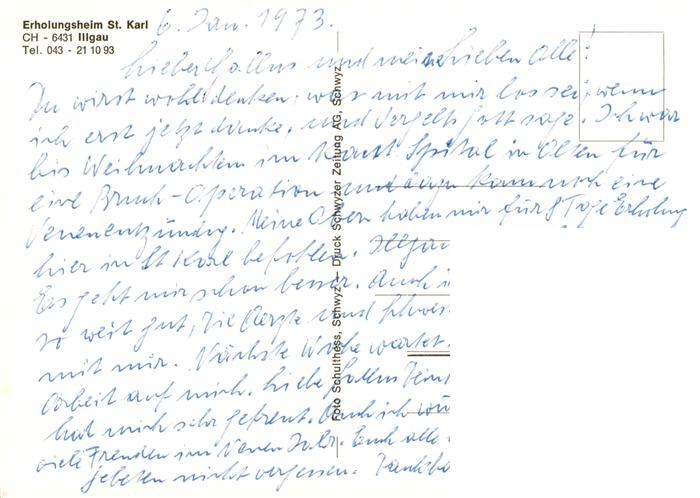 Erholungsheim St. Karl
CH - 6431 Illgau
Tel. 043 - 21 10 93
6. Jan. 1973.
Lieber Gallus und meine lieben Alle!
Du wirst wohl denken, was mit mir los sei, wenn
ich erst jetzt danke, und Vergelts Gott sage. Ich war
bis Weihnachten im Kant. Spital in Olten für
eine Bruch-Operation und dazu kam noch eine
Venenentzündung. Meine Obern haben mir für 8 Tage Erholung
hier in St Karl befohlen. Illgau
Es geht mir schon besser. Auch i
so weit gut, die Aerzte und Schwes
mit mir. Nächste Woche wartet
Arbeit auf mich. Lieber Gallus Dein
hat mich sehr gefreut. Auch ich wün
viele Freuden im Neuen Jahr. Euch alle
Gebeten nicht vergessen. Dankba
Foto Schulthess, Schwyz — Druck Schwyzer Zeitung AG, Schwyz